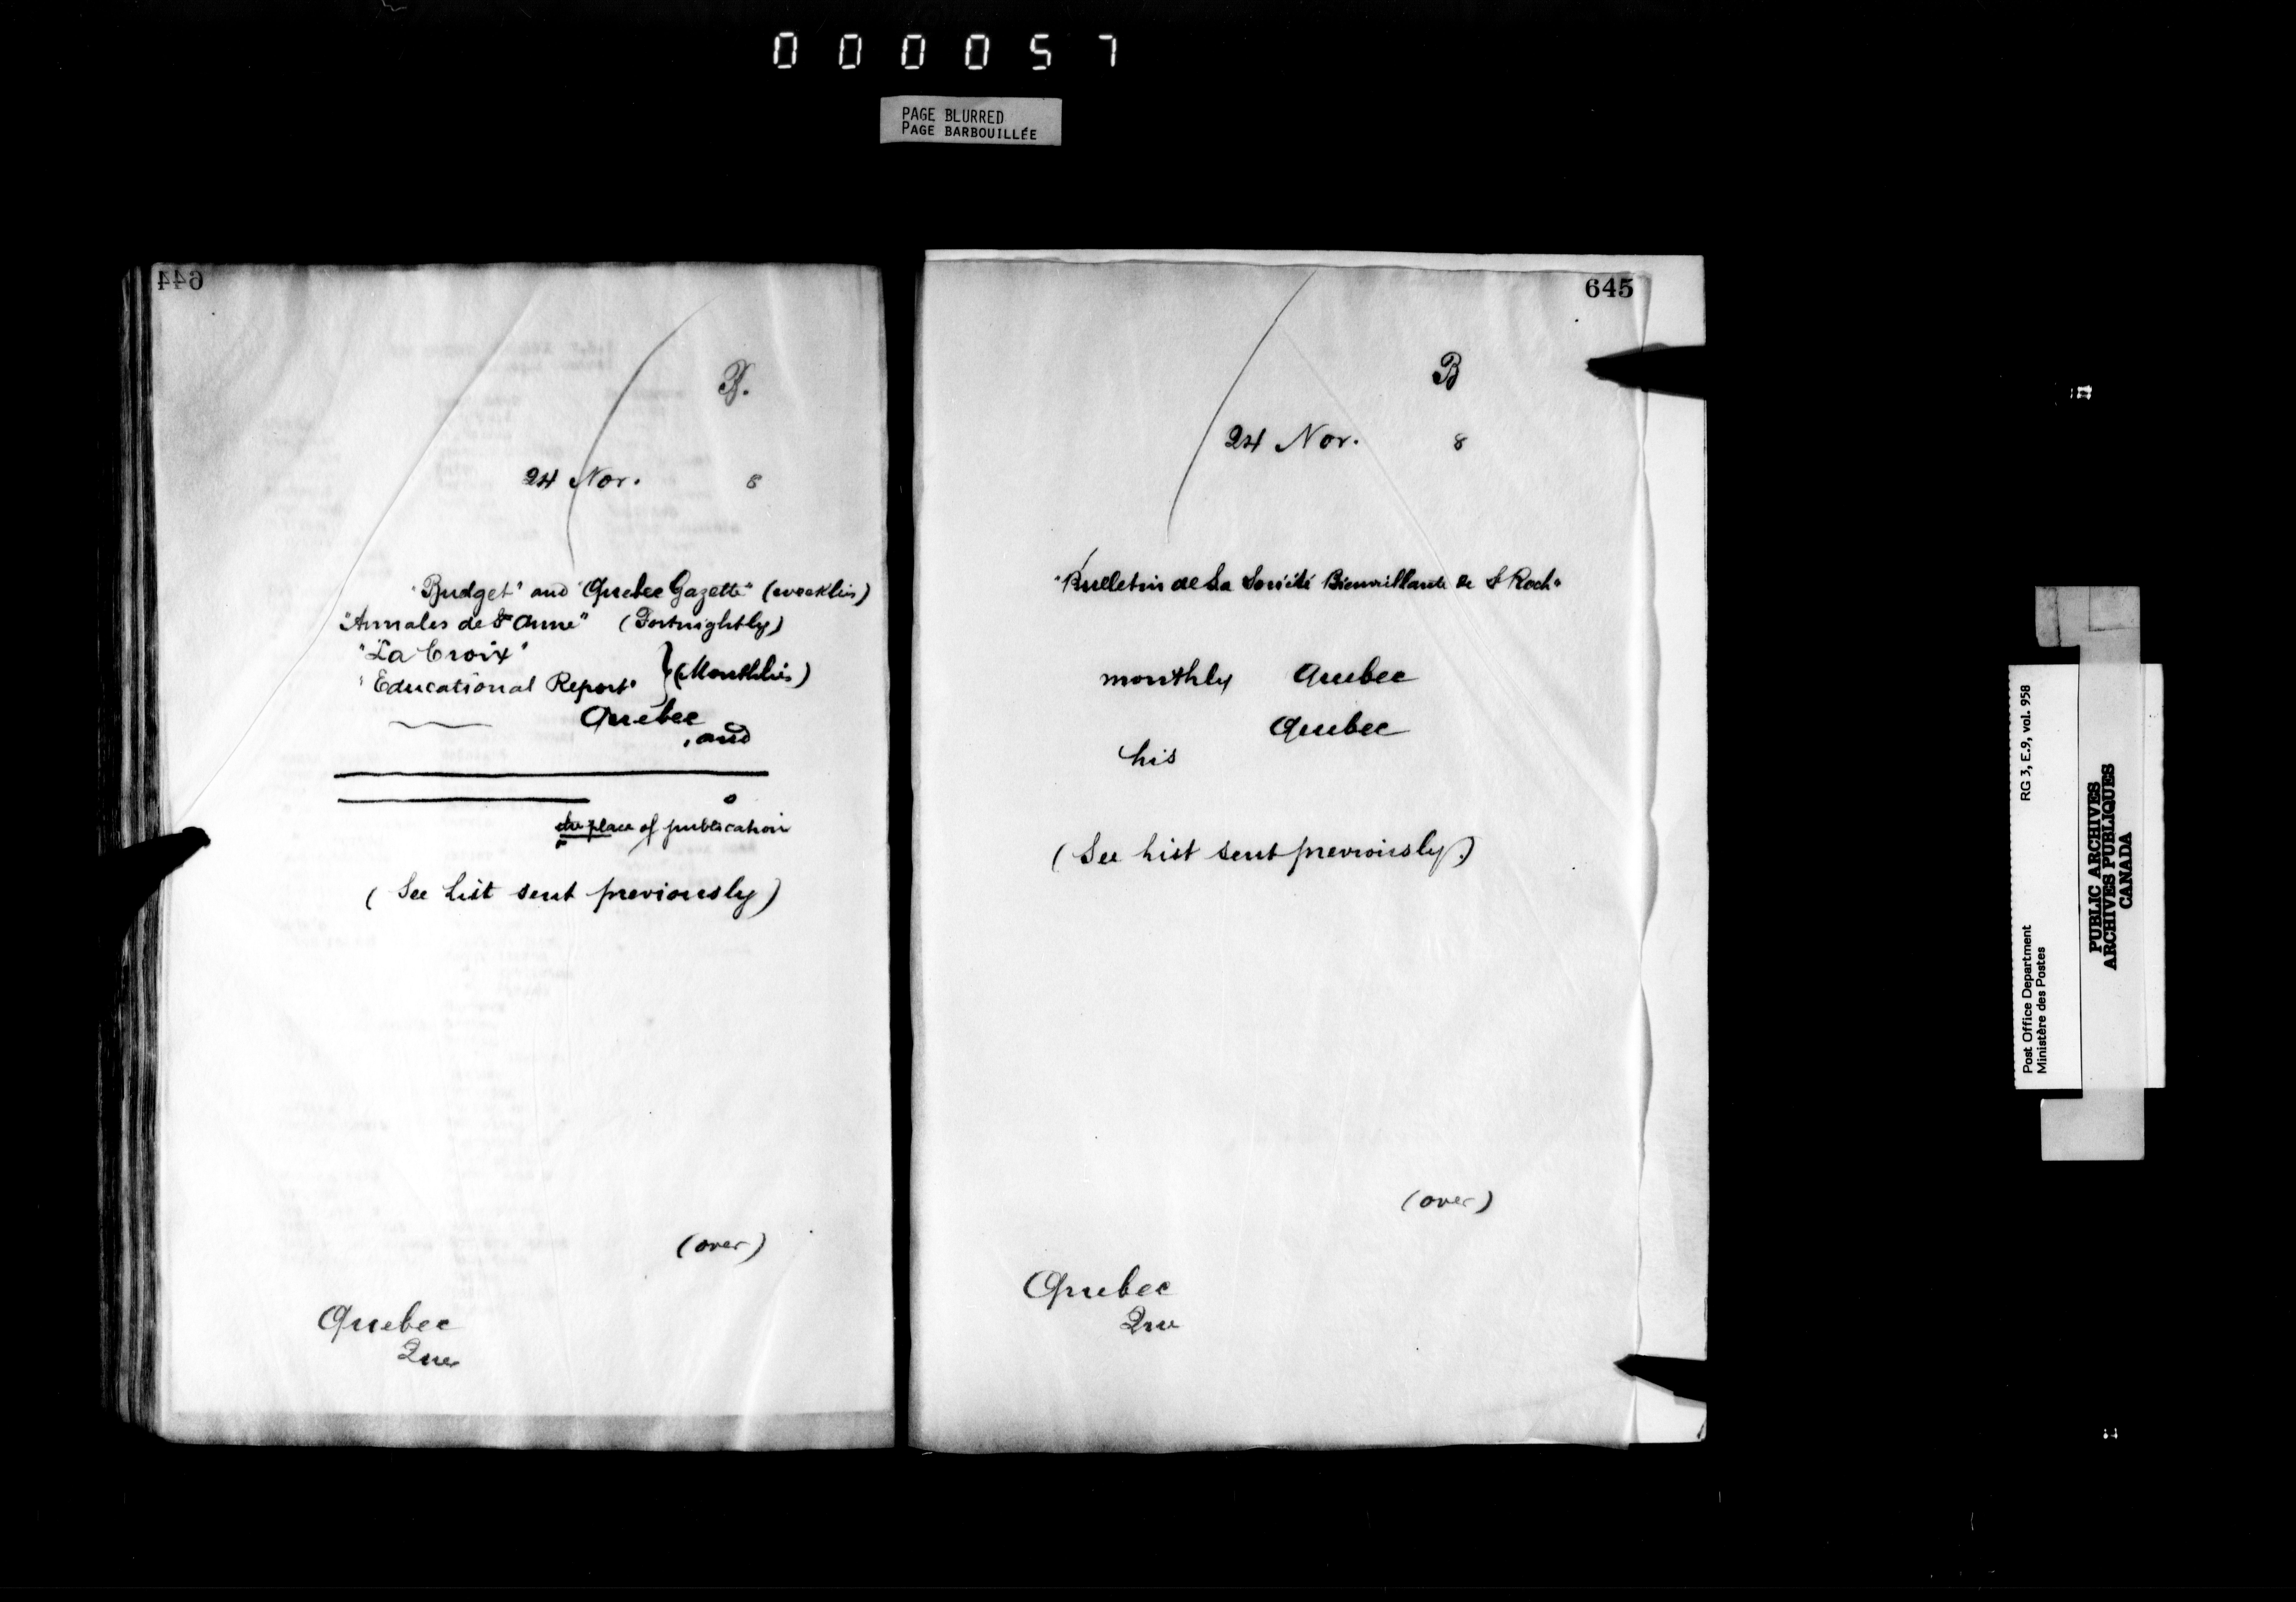 000057
PAGE BLURRED
PAGE BARBOUILLÉE
644
B.
24 Nov. 8
"Budget" and "Quebec Gazette" (weeklies)
"Annales de St Anne" (Fortnightly)
"La Croix"
"Educational Report" } (Monthlies)
Quebec
, and
place of publication
(See List sent previously)
(over)
Quebec
Que
645
B
24 Nov. 8
"Bulletin de La Société Bienveillante de St Roch"
monthly Quebec
Quebec
his
(See List sent previously.)
(over)
Quebec
Que
Post Office Department
Ministère des Postes
RG 3, E.9, vol. 958
PUBLIC ARCHIVES
ARCHIVES PUBLIQUES
CANADA